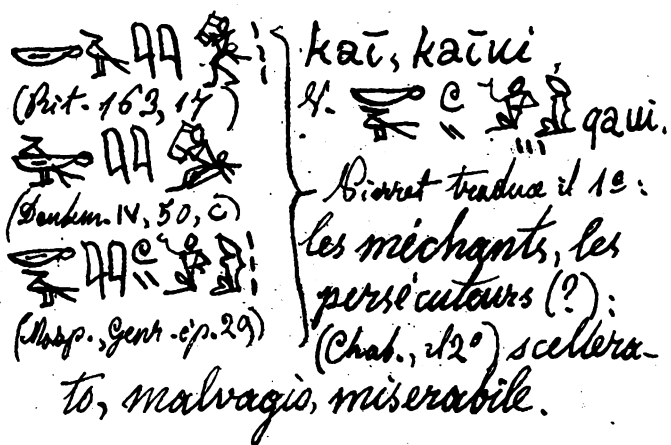 (Rit. 163, 17)
(Denkm. IV, 50, c)
(Masp., Genr. ép. 29)
kaī, kaīui,
V. qaui.
Pierret traduce il 1º:
les méchants, les
persécuteurs (?):
(Chab., il 2º) scellera-
to, malvagio, miserabile.